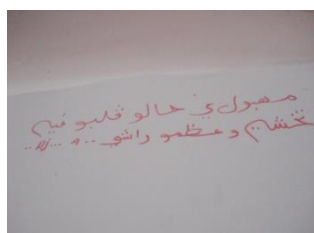 مهبول في حالو قلبو فيه
غشيم وعظمو راشي ..